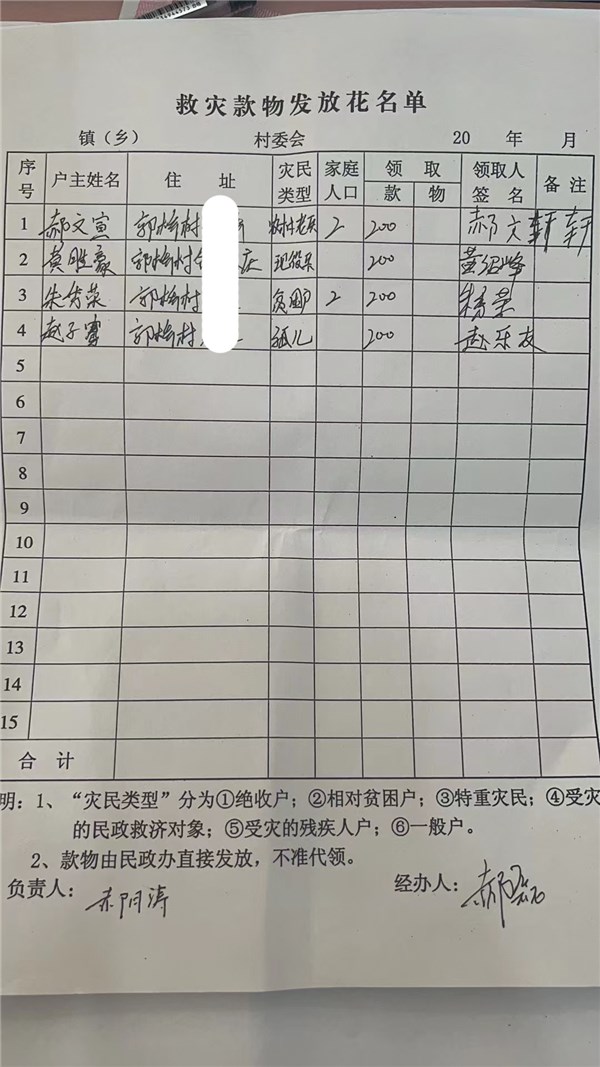 救灾款物发放花名单
镇（乡） 村委会 20 年 月
序号 户主姓名 住址 灾民类型 家庭人口 领取 款 物 领取人签名 备注
1 郝文宣 郭杨村 2 200 郝文轩 轩
2 黄胜豪 郭杨村 庆 现役军 200 黄绍峰
3 朱秀荣 郭杨村 贫困户 2 200 杨景
4 赵子骞 郭杨村 孤儿 200 赵乐友
5
6
7
8
9
10
11
12
13
14
15
合计
明：1、“灾民类型”分为①绝收户；②相对贫困户；③特重灾民；④受灾
的民政救济对象；⑤受灾的残疾人户；⑥一般户。
2、款物由民政办直接发放，不准代领。
负责人： 经办人：郝磊